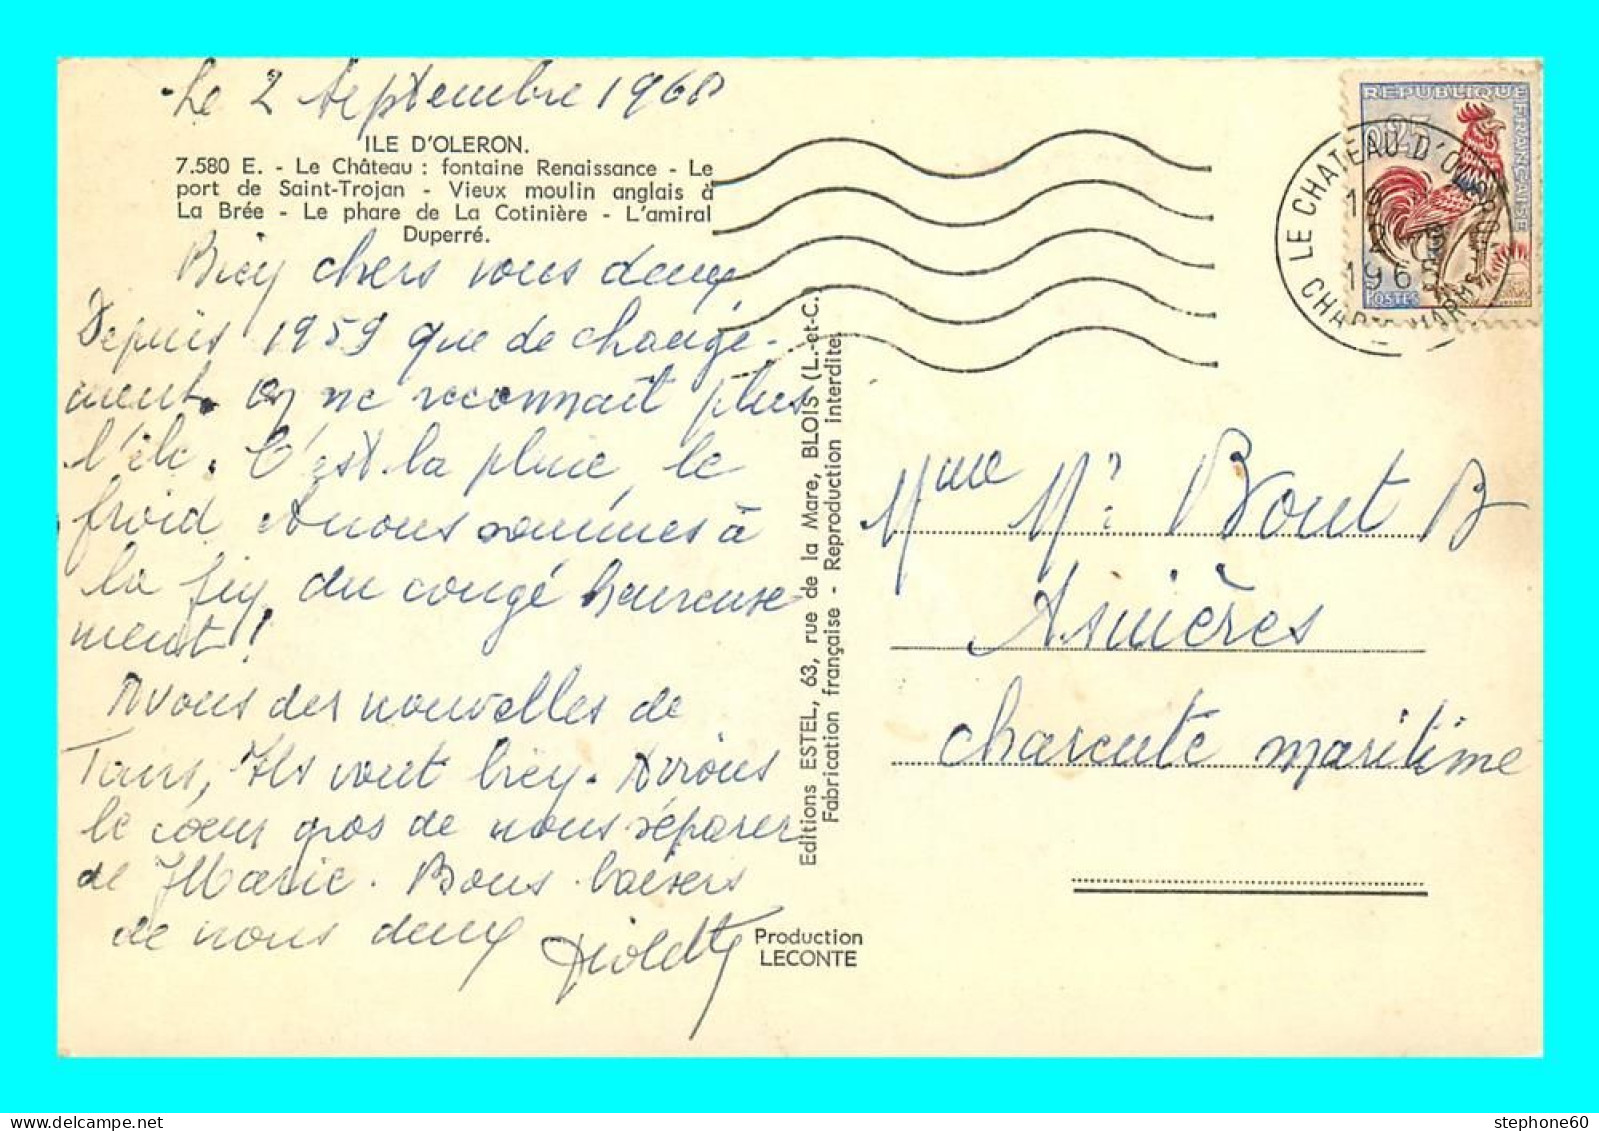 Le 2 Septembre 1968
ILE D'OLERON.
7.580 E. - Le Château : fontaine Renaissance - Le
port de Saint-Trojan - Vieux moulin anglais à
La Brée - Le phare de La Cotinière - L'amiral
Duperré.
Bien chers vous deux
Depuis 1959 que de change-
ment. On ne reconnait plus
l'île. C'est la pluie, le
froid & nous sommes à
la fin du congé heureuse
ment !
Avons des nouvelles de
Tours, Ils vont bien. Avions
le cœur gros de nous séparer
de Marie. Bons baisers
de nous deux
Violette
Editions ESTEL, 63, rue de la Mare, BLOIS (L.-et-C.)
Fabrication française - Reproduction interdite.
Production
LECONTE
REPUBLIQUE FRANÇAISE
0,25
POSTES
LE CHATEAU D'OLERON
2
196
CHARTE MARME
Mme Bout B
Asnières
Charente maritime
stephone60